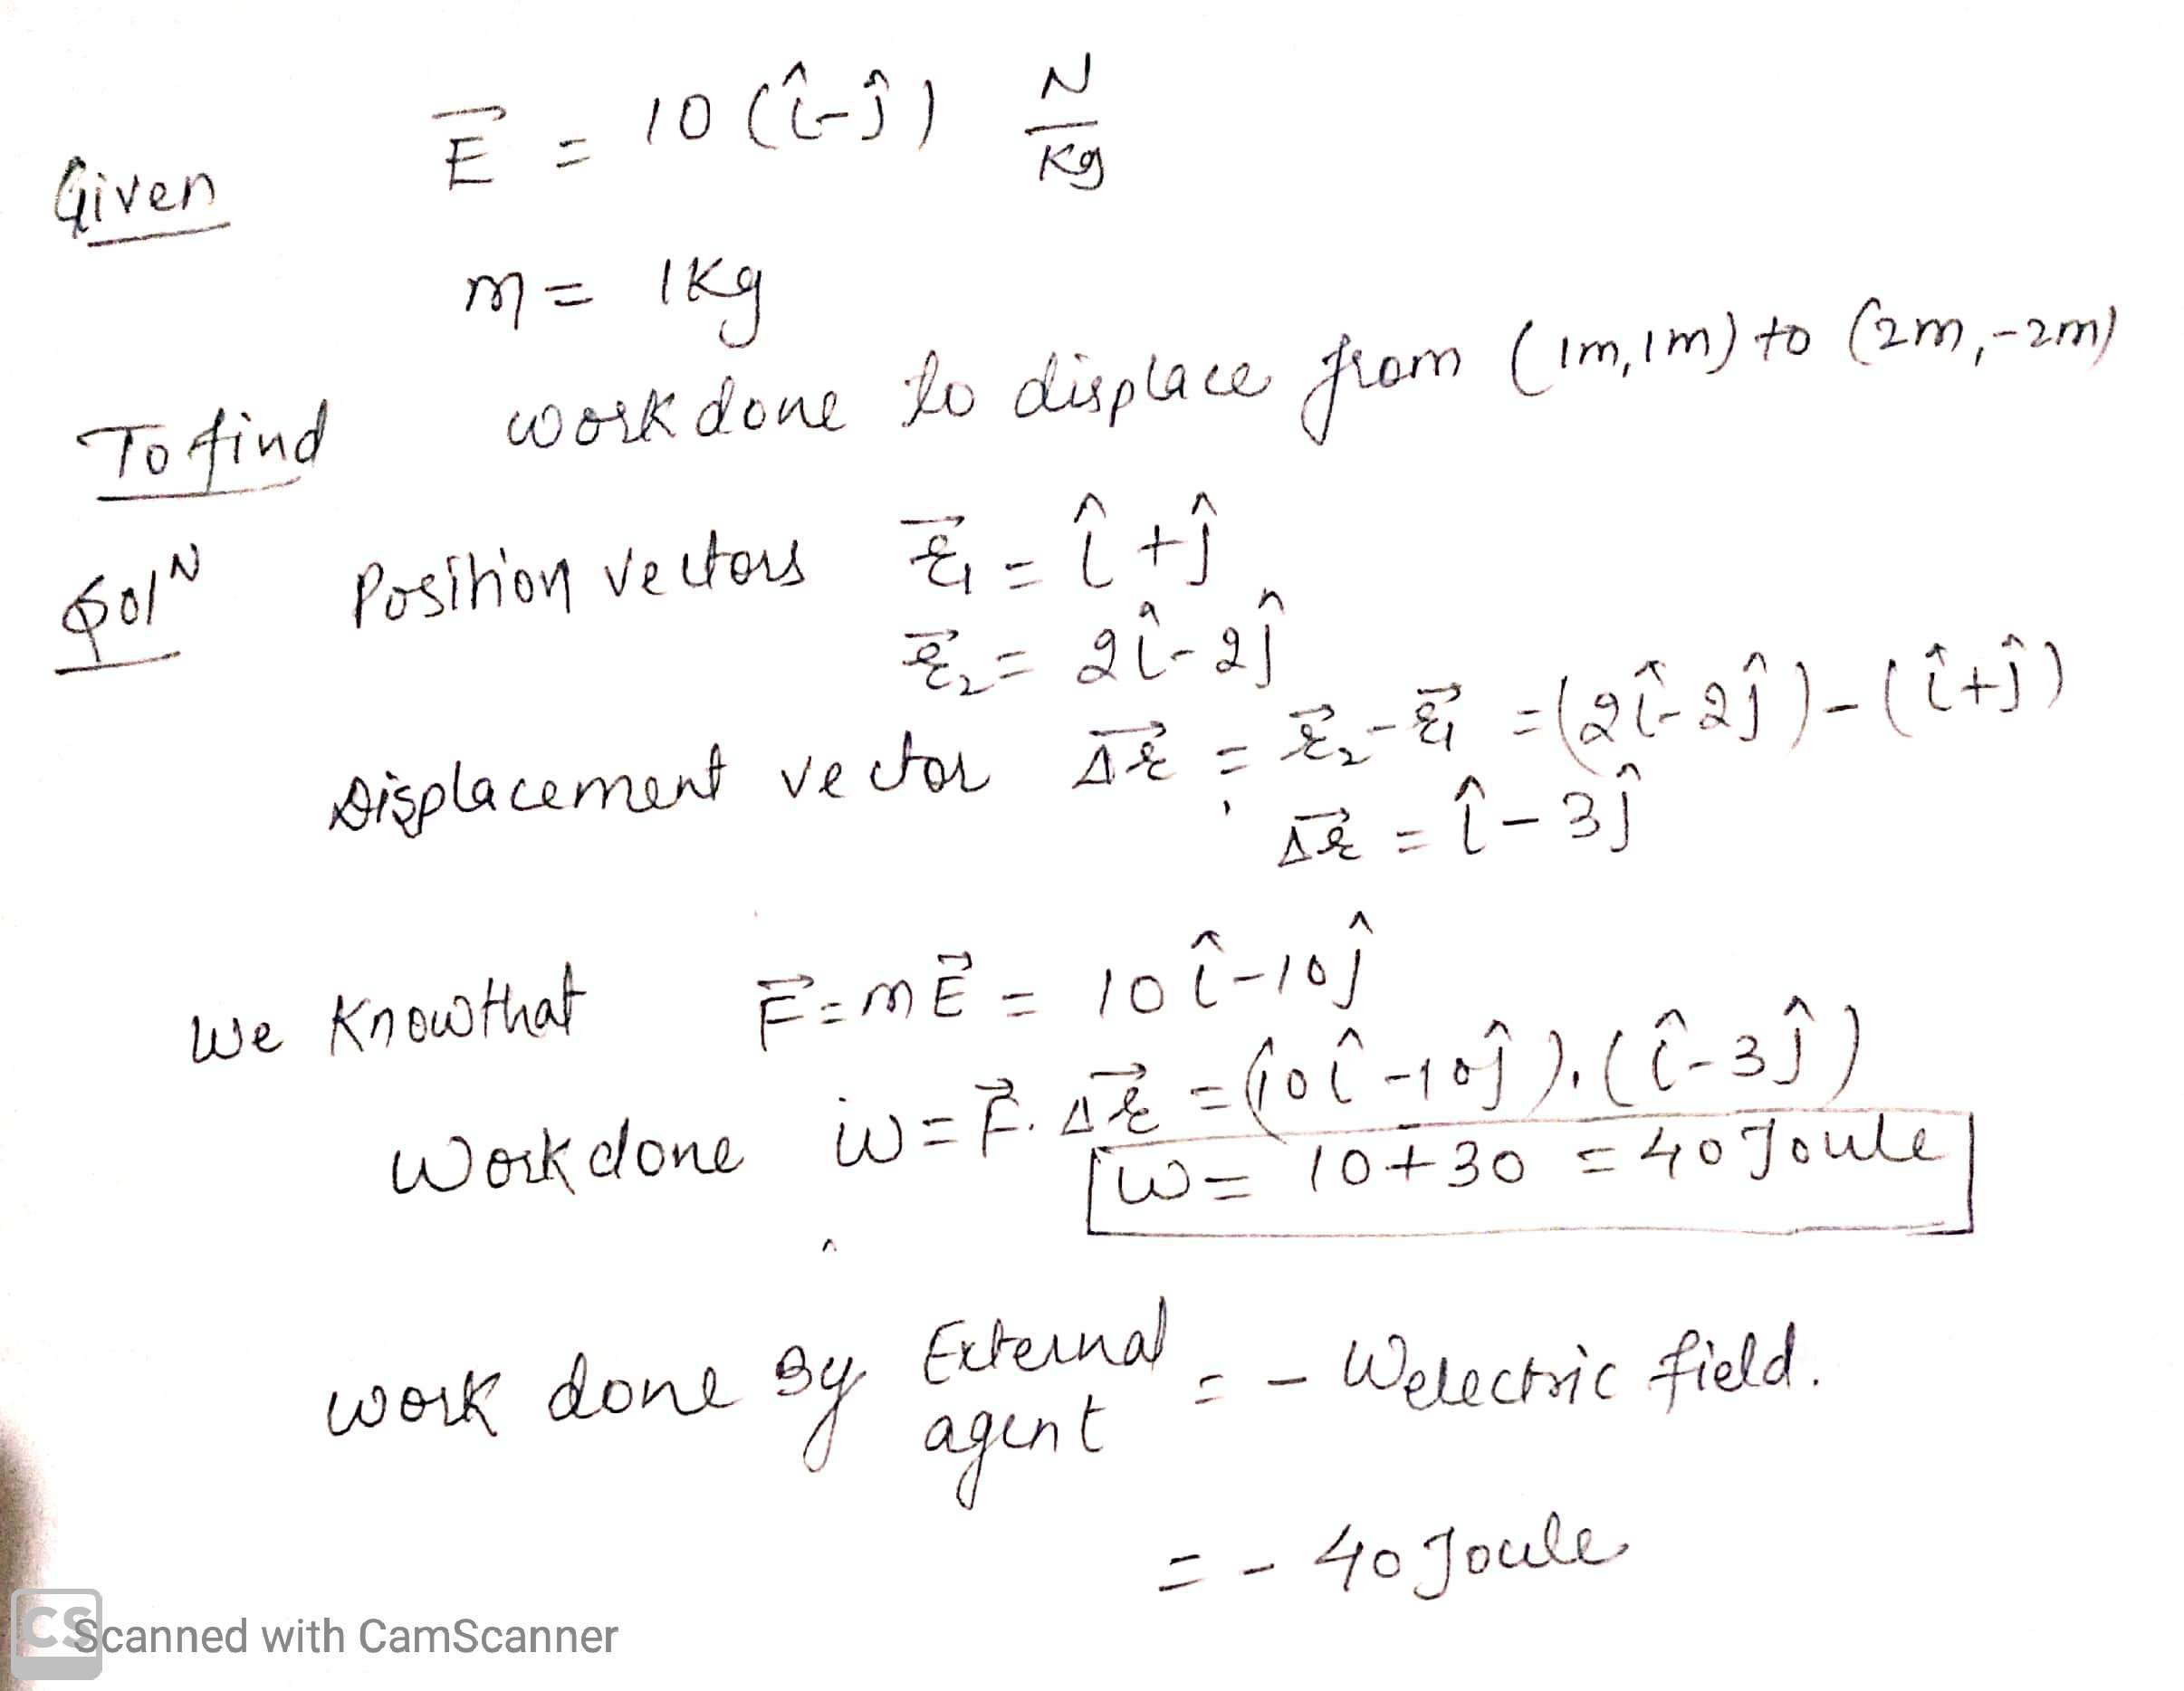 Given E⃗ = 10 (î-ĵ) N/Kg
m = 1Kg
To find work done to displace from (1m,1m) to (2m,-2m)
Solᴺ Position vectors r⃗₁ = î + ĵ
r⃗₂ = 2î - 2ĵ
Displacement vector Δr⃗ = r⃗₂ - r⃗₁ = (2î-2ĵ) - (î+ĵ)
Δr⃗ = î - 3ĵ
We Know that F⃗ = mE⃗ = 10î - 10ĵ
Work done W = F⃗. Δr⃗ = (10î - 10ĵ).(î-3ĵ)
W = 10 + 30 = 40 Joule
work done By External agent = - Welectric field.
= - 40 Joule
CS Scanned with CamScanner